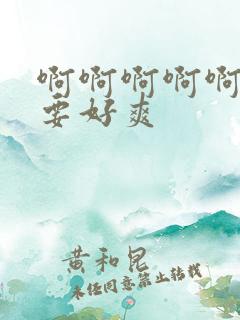 啊啊啊啊啊
要好爽
黄和昆
未经同意禁止转载